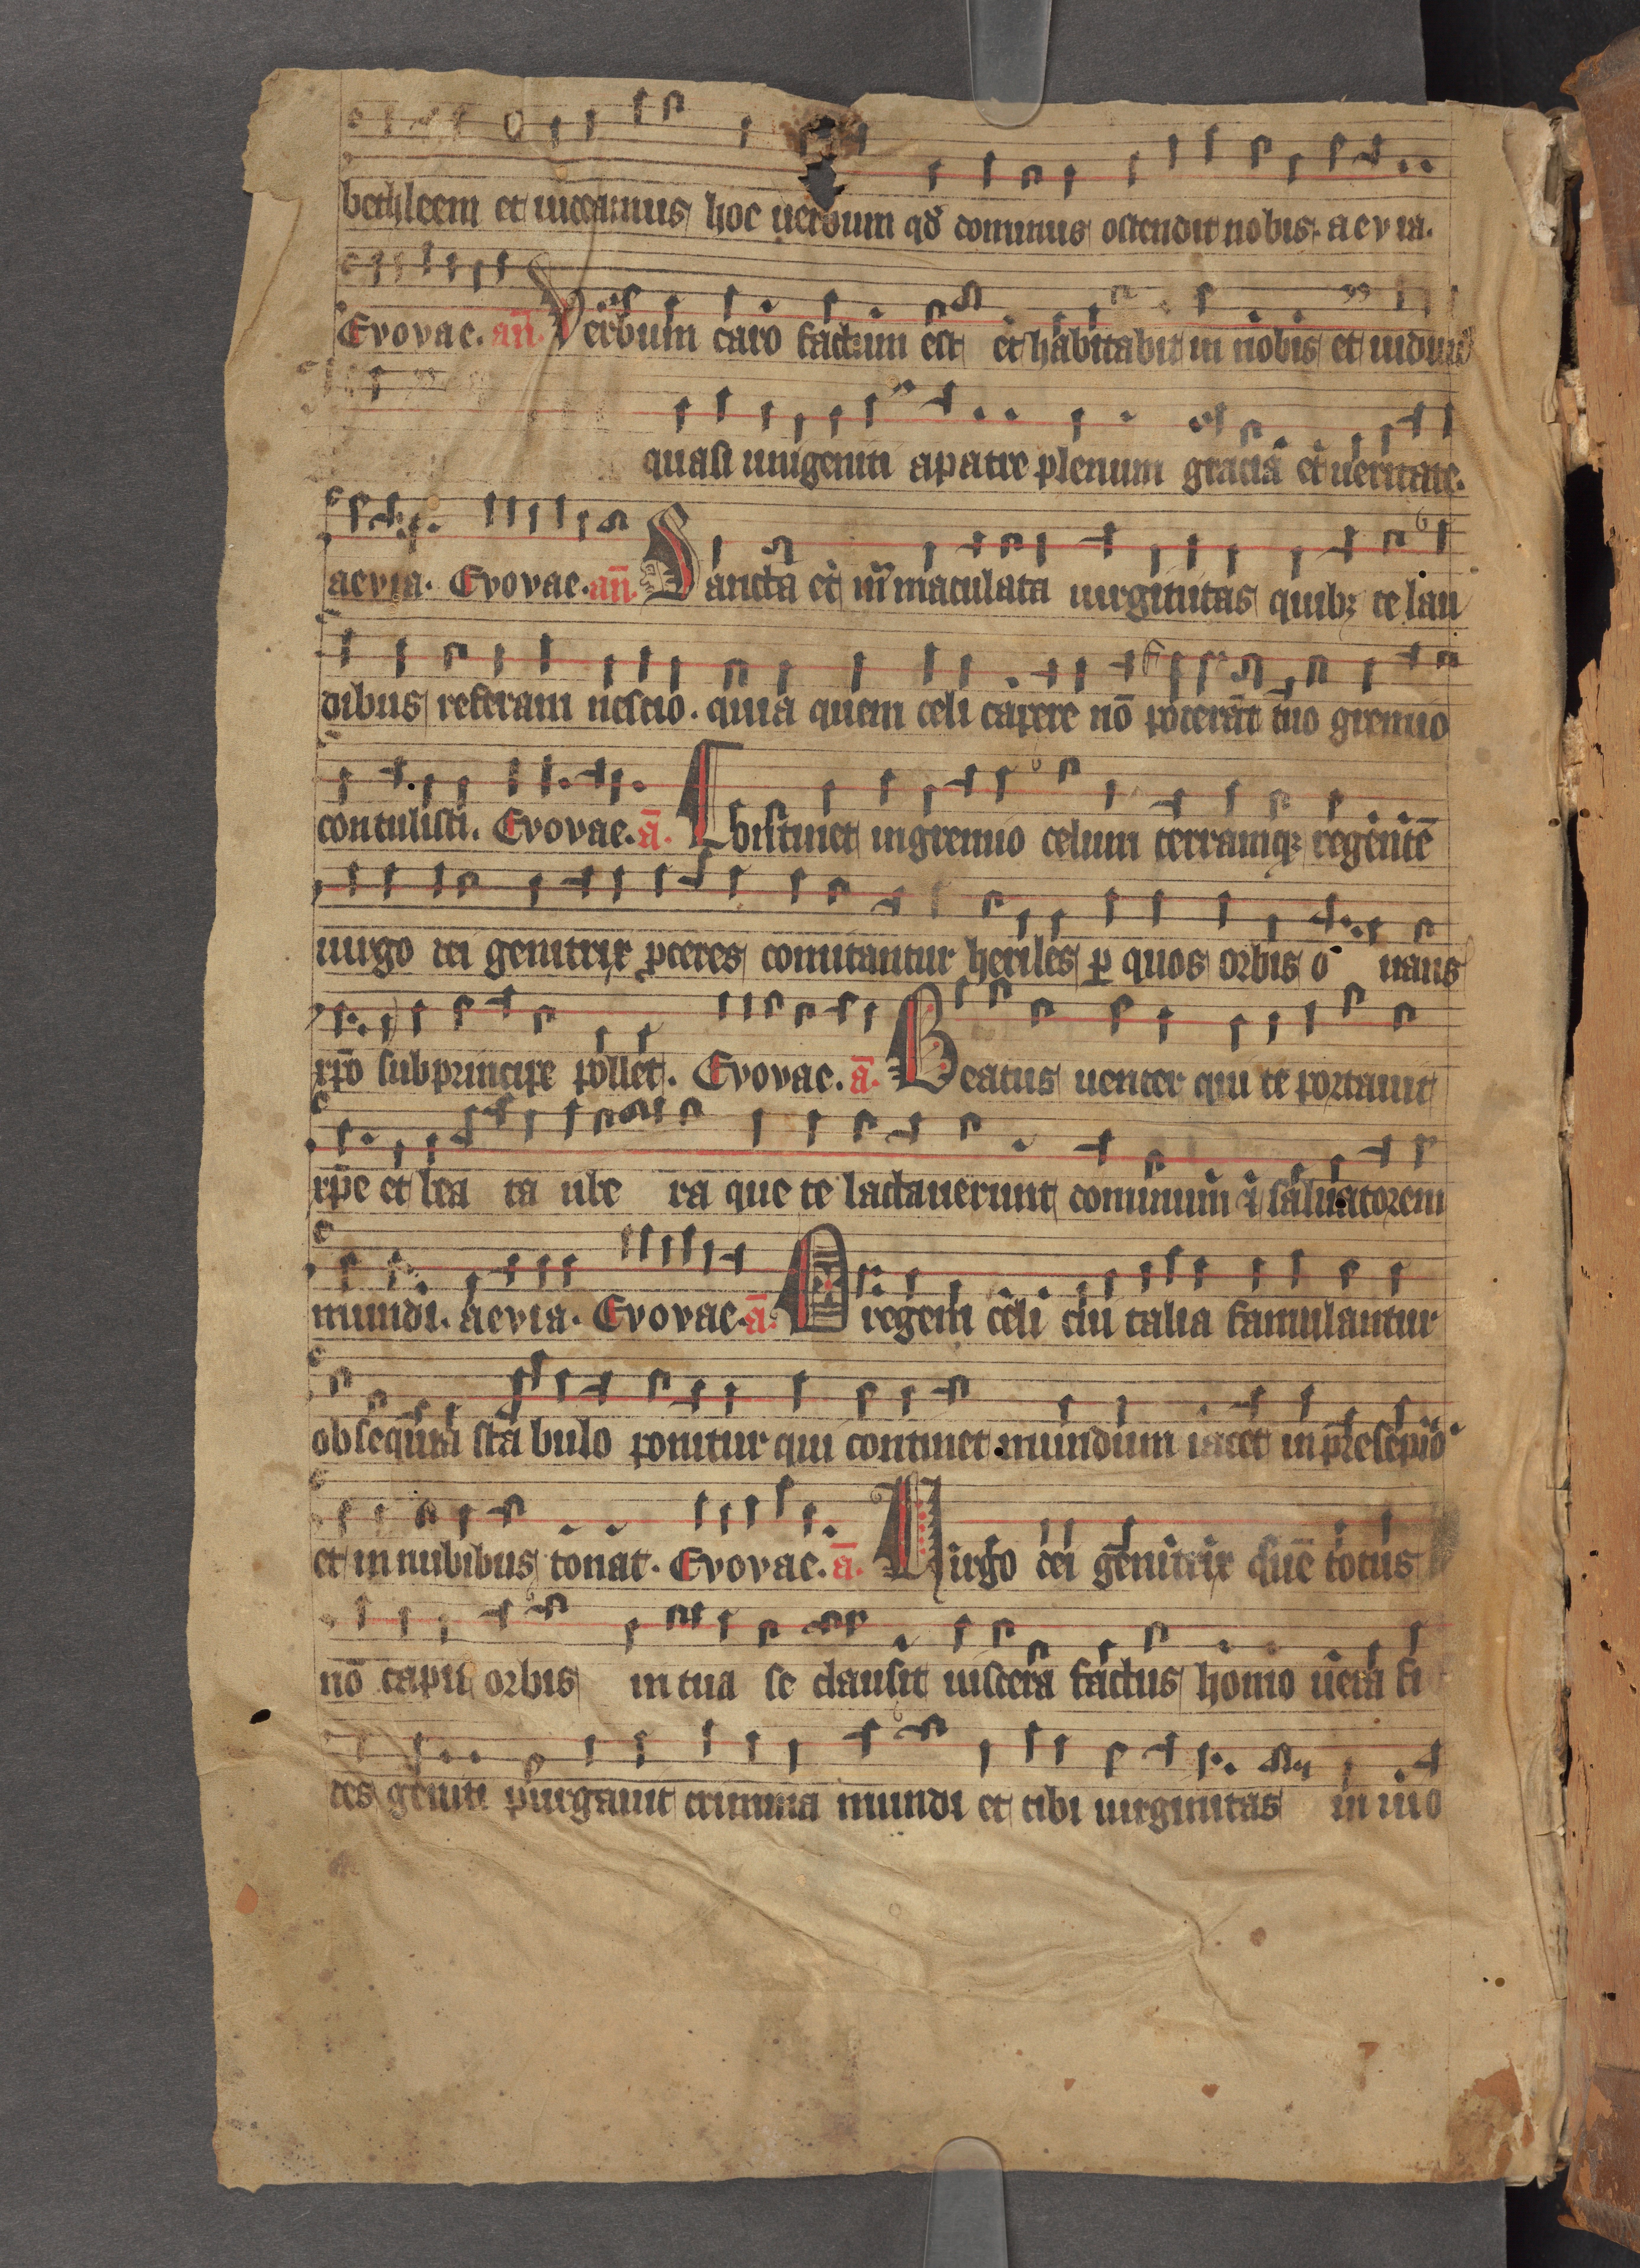 bethleem et uideamus hoc uerbum qd̄ dominus ostendit nobis. aevia.
Evovae. an̄. Verbum caro factum est et habitabit in nobis et uidim̄
quasi unigeniti a patre plenum gracia et ueritate.
aevia. Evovae. an̄. Sancta et īmaculata uirginitas quibꝫ te lau
dibus referam nescio. quia quem celi capere nō poterāt tuo gremio
contulisti. Evovae. ā. Obstinet in gremio celum terramqꝫ regentē
uirgo dei genitrix ꝓceres comitantur heriles ꝑ quos orbis o uans
xp̄o sub principe pollet. Evovae. ā. Beatus uenter qui te portauit
xp̄e et bea ta ube ra que te lactauerunt dominum ⁊ saluatorem
mundi. aevia. Evovae. ā. O regem celi cui talia famulantur
obsequia stabulo ponitur qui continet mundum iacet in presepio
et in nubibus tonat. Evovae. ā. Virgo dei genitrix quē totus
nō capit orbis in tua se clausit uiscera factus homo uera fi
des geniti purgauit crimina mundi et tibi uirginitas in uio